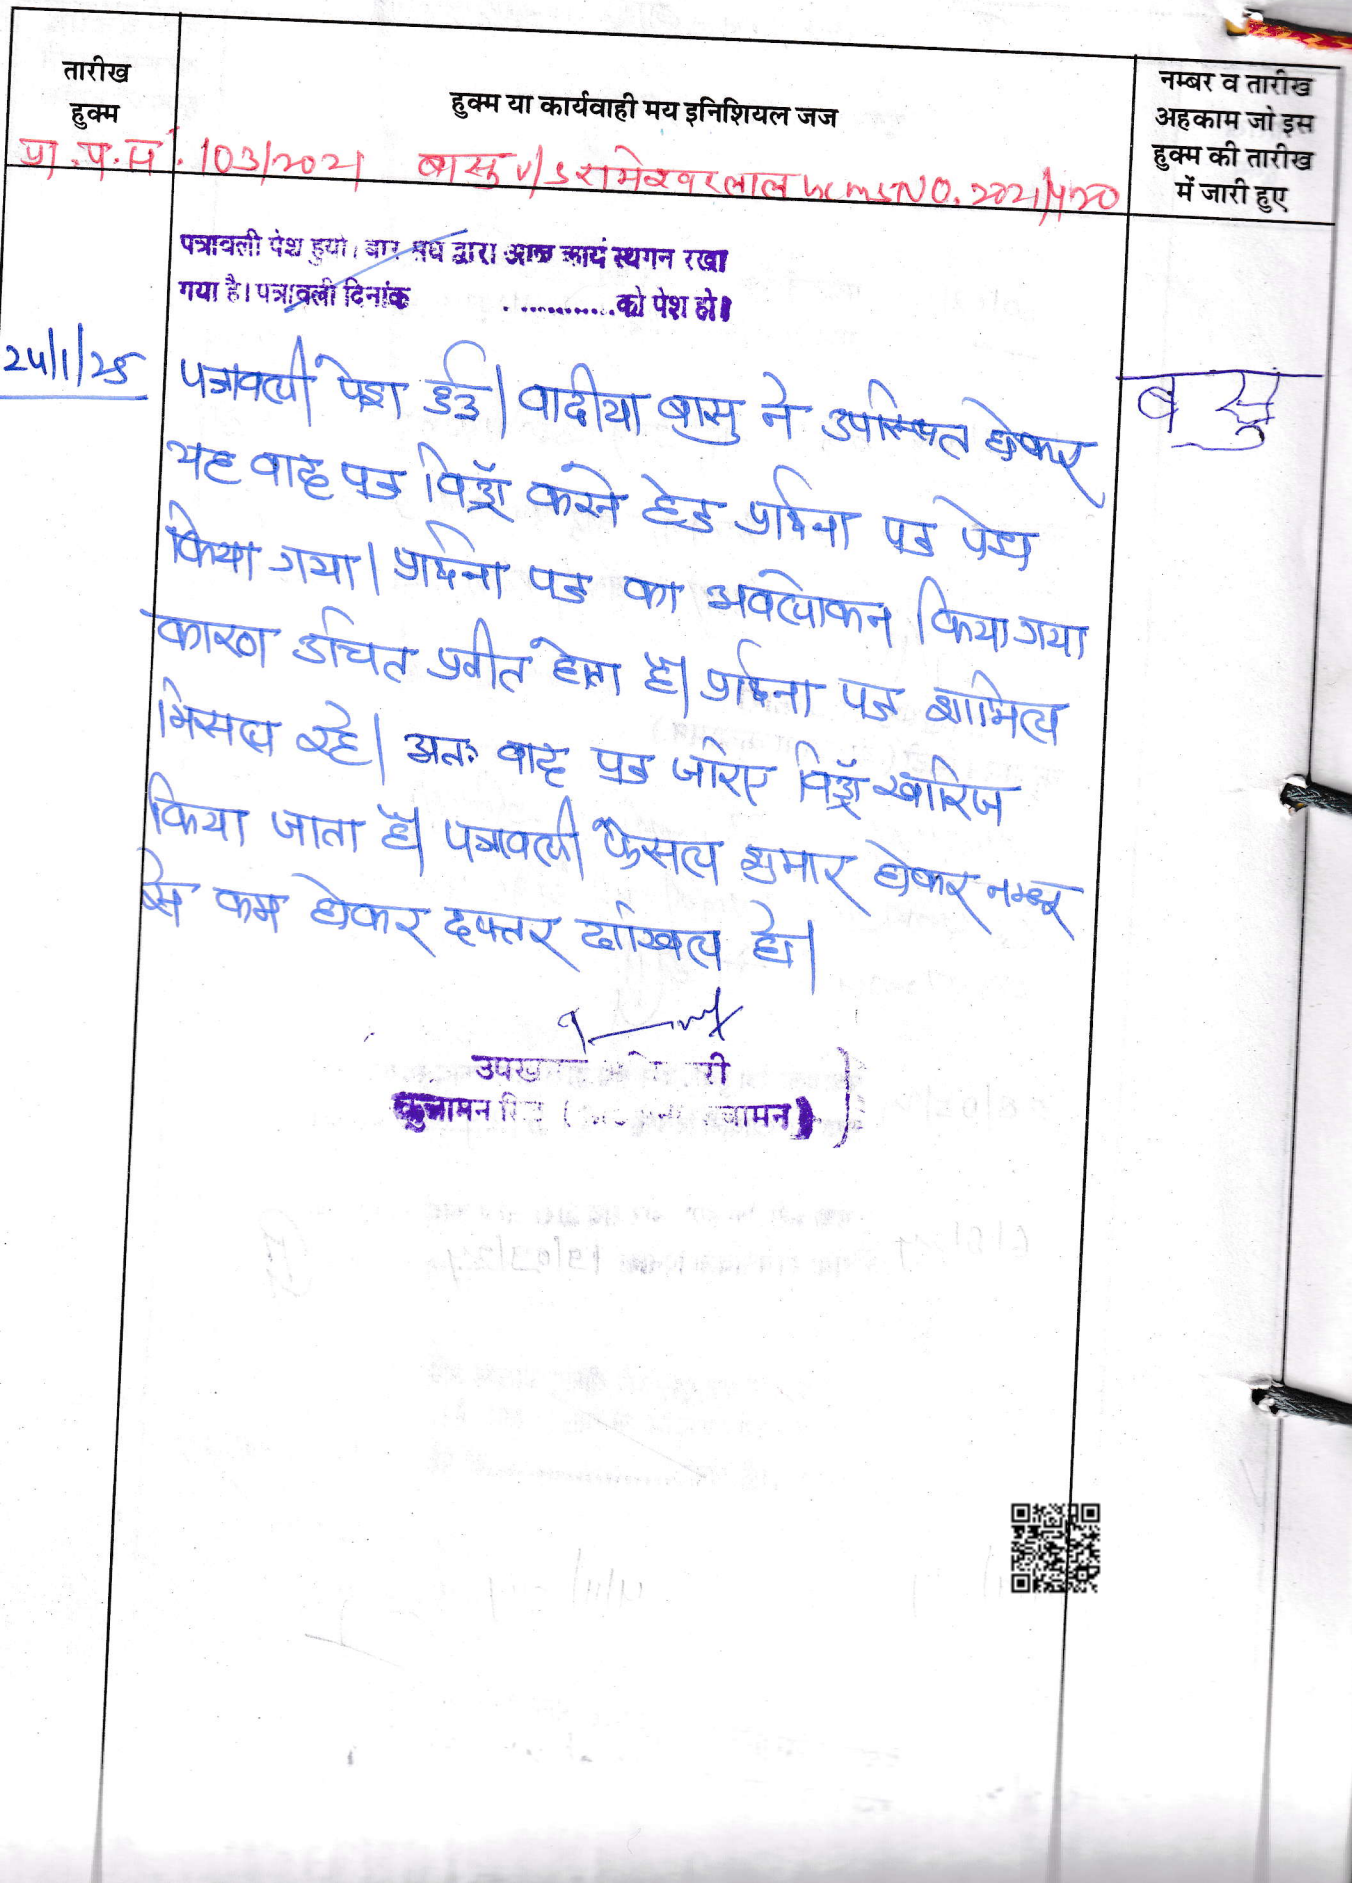 तारीख
हुक्म
हुक्म या कार्यवाही मय इनिशियल जज
नम्बर व तारीख
अहकाम जो इस
हुक्म की तारीख
में जारी हुए
प्रा.प.सं. 103/2021 बासु v/s रामेश्वरलाल NO. 2021/420
पत्रावली पेश हुयी। बार संघ द्वारा आज कार्य स्थगन रखा
गया है। पत्रावली दिनांक ............ को पेश हो।
24/1/25
पत्रावली पेश हुई। वादीया बासु ने उपस्थित होकर
यह वाद पत्र विड्रॉ करने हेतु प्रार्थना पत्र पेश
किया गया। प्रार्थना पत्र का अवलोकन किया गया
कारण उचित प्रतीत होता है। प्रार्थना पत्र शामिल
मिसल रहे। अतः वाद पत्र जरिए विड्रॉ खारिज
किया जाता है। पत्रावली फैसल शुमार होकर नम्बर
से कम होकर दफ्तर दाखिल हो।
बासु
कुचामन